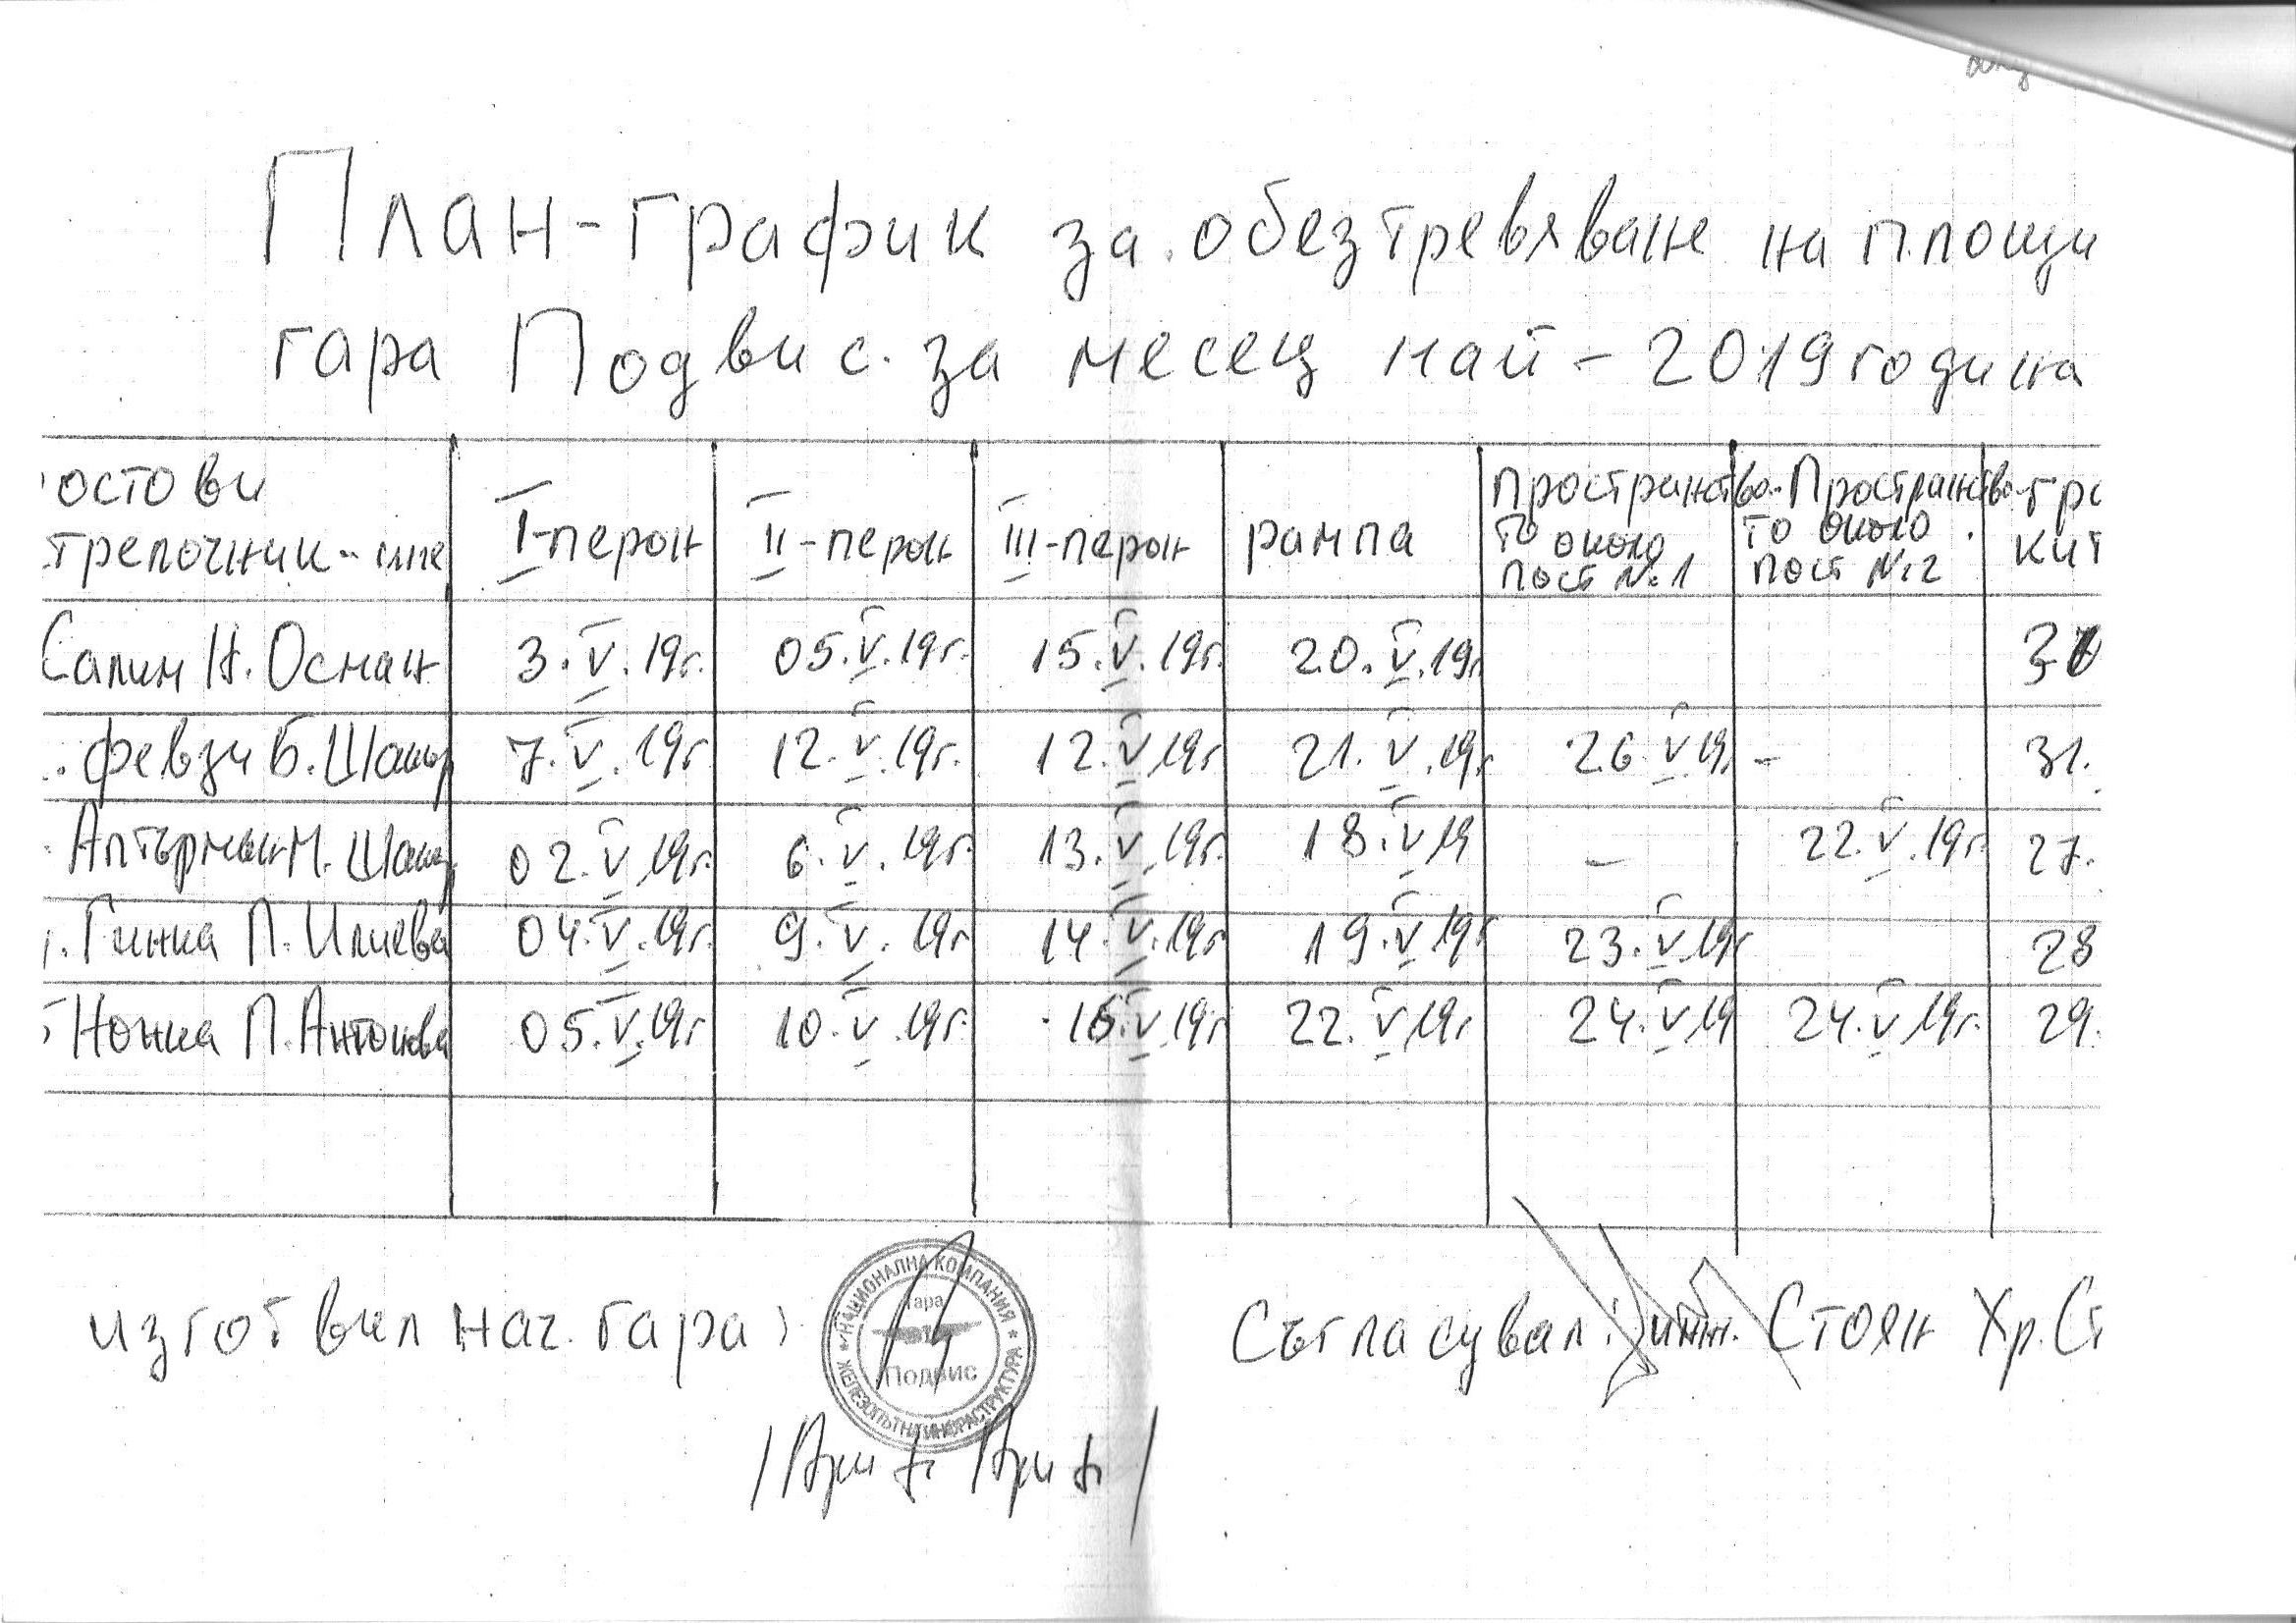 План-график за обезтревяване на площи
гара Подвис. за месец май - 2019 година
остови
трелочник-име
I-перон
II-перон
III-перон
рампа
Пространство-
то около
пост №1
Пространство-
то около
пост №2
кит
Салим Н. Осман 3.V.19г. 05.V.19г. 15.V.19г. 20.V.19г
февзи Б. 7.V.19г 12.V.19г. 12.V.19г 21.V.19г 26.V.19. - 31.
Аптърман М. 02.V.19г. 6.V.19г. 13.V.19г. 18.V.19 - 22.V.19г 27.
Гинка П. Илиева 04.V.19г. 9.V.19г 14.V.19г 19.V.19г 23.V.19г 28
Нонка П. Антонова 05.V.19г 10.V.19г. 16.V.19г 22.V.19г 24.V.19 24.V.19г. 29.
изготвил нач. гара:
НАЦИОНАЛНА КОМПАНИЯ
ЖЕЛЕЗОПЪТНА ИНФРАСТРУКТУРА
гара
Подвис
Съгласувал: инж. Стоян Хр. Ст